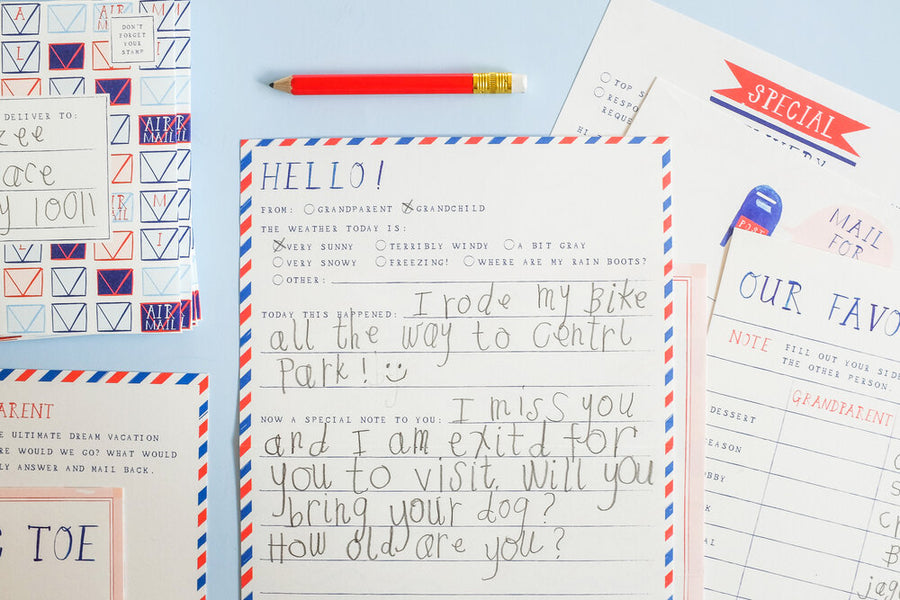 A
AIR
MAIL
DON'T
FORGET
YOUR
STAMP
L
DELIVER TO:
AIR
MAIL
ace
AIR
MAIL
M
y 10011
I
AIR
MAIL
HELLO!
FROM: GRANDPARENT GRANDCHILD
THE WEATHER TODAY IS:
VERY SUNNY TERRIBLY WINDY A BIT GRAY
VERY SNOWY FREEZING! WHERE ARE MY RAIN BOOTS?
OTHER:
TODAY THIS HAPPENED: I rode my Bike
all the way to Centrl
Park!
NOW A SPECIAL NOTE TO YOU: I miss you
and I am exitd for
you to visit. Will you
bring your dog?
How old are you?
ARENT
E ULTIMATE DREAM VACATION
RE WOULD WE GO? WHAT WOULD
LY ANSWER AND MAIL BACK.
TOE
SPECIAL
TOP S
RESPO
REQUE
HI
POST
MAIL
FOR
OUR FAVO
NOTE FILL OUT YOUR SIDE
THE OTHER PERSON.
GRANDPARENT
DESSERT
EASON
BBY
K
AL